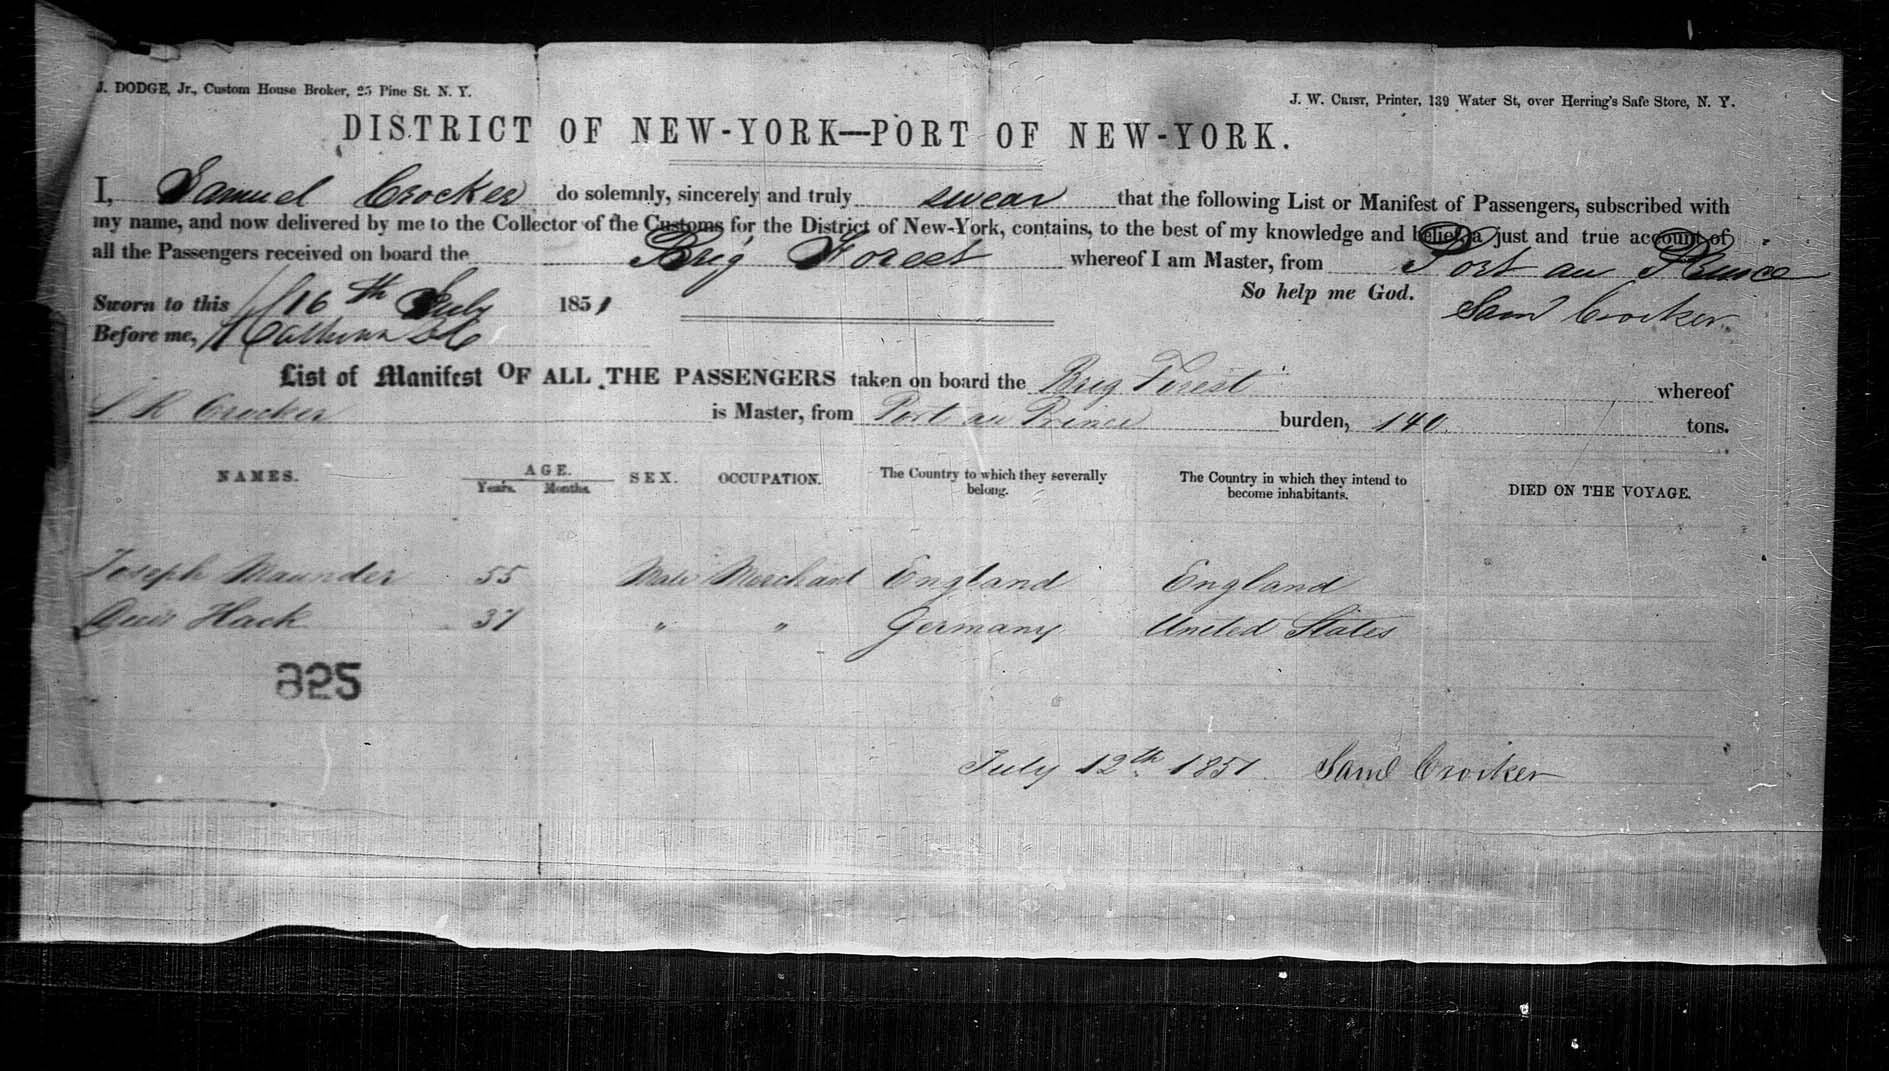 J. DODGE, Jr., Custom House Broker, 25 Pine St. N. Y.
J. W. CRIST, Printer, 139 Water St, over Herring's Safe Store, N. Y.
DISTRICT OF NEW-YORK—PORT OF NEW-YORK.
I, Samuel Crocker do solemnly, sincerely and truly swear that the following List or Manifest of Passengers, subscribed with
my name, and now delivered by me to the Collector of the Customs for the District of New-York, contains, to the best of my knowledge and belief, a just and true account of
all the Passengers received on board the Brig Forest whereof I am Master, from Port au Prince
So help me God.
Sworn to this 16th July 1851
Saml Crocker
Before me,
List of Manifest OF ALL THE PASSENGERS taken on board the Brig Forest whereof
S R Crocker is Master, from Port au Prince burden, 140 tons.
NAMES. AGE. SEX. OCCUPATION. The Country to which they severally belong. The Country in which they intend to become inhabitants. DIED ON THE VOYAGE.
Years. Months.
Joseph Maunder 55 Male Merchant England England
Hack 37 " " Germany United States
825
July 12th 1851. Saml Crocker